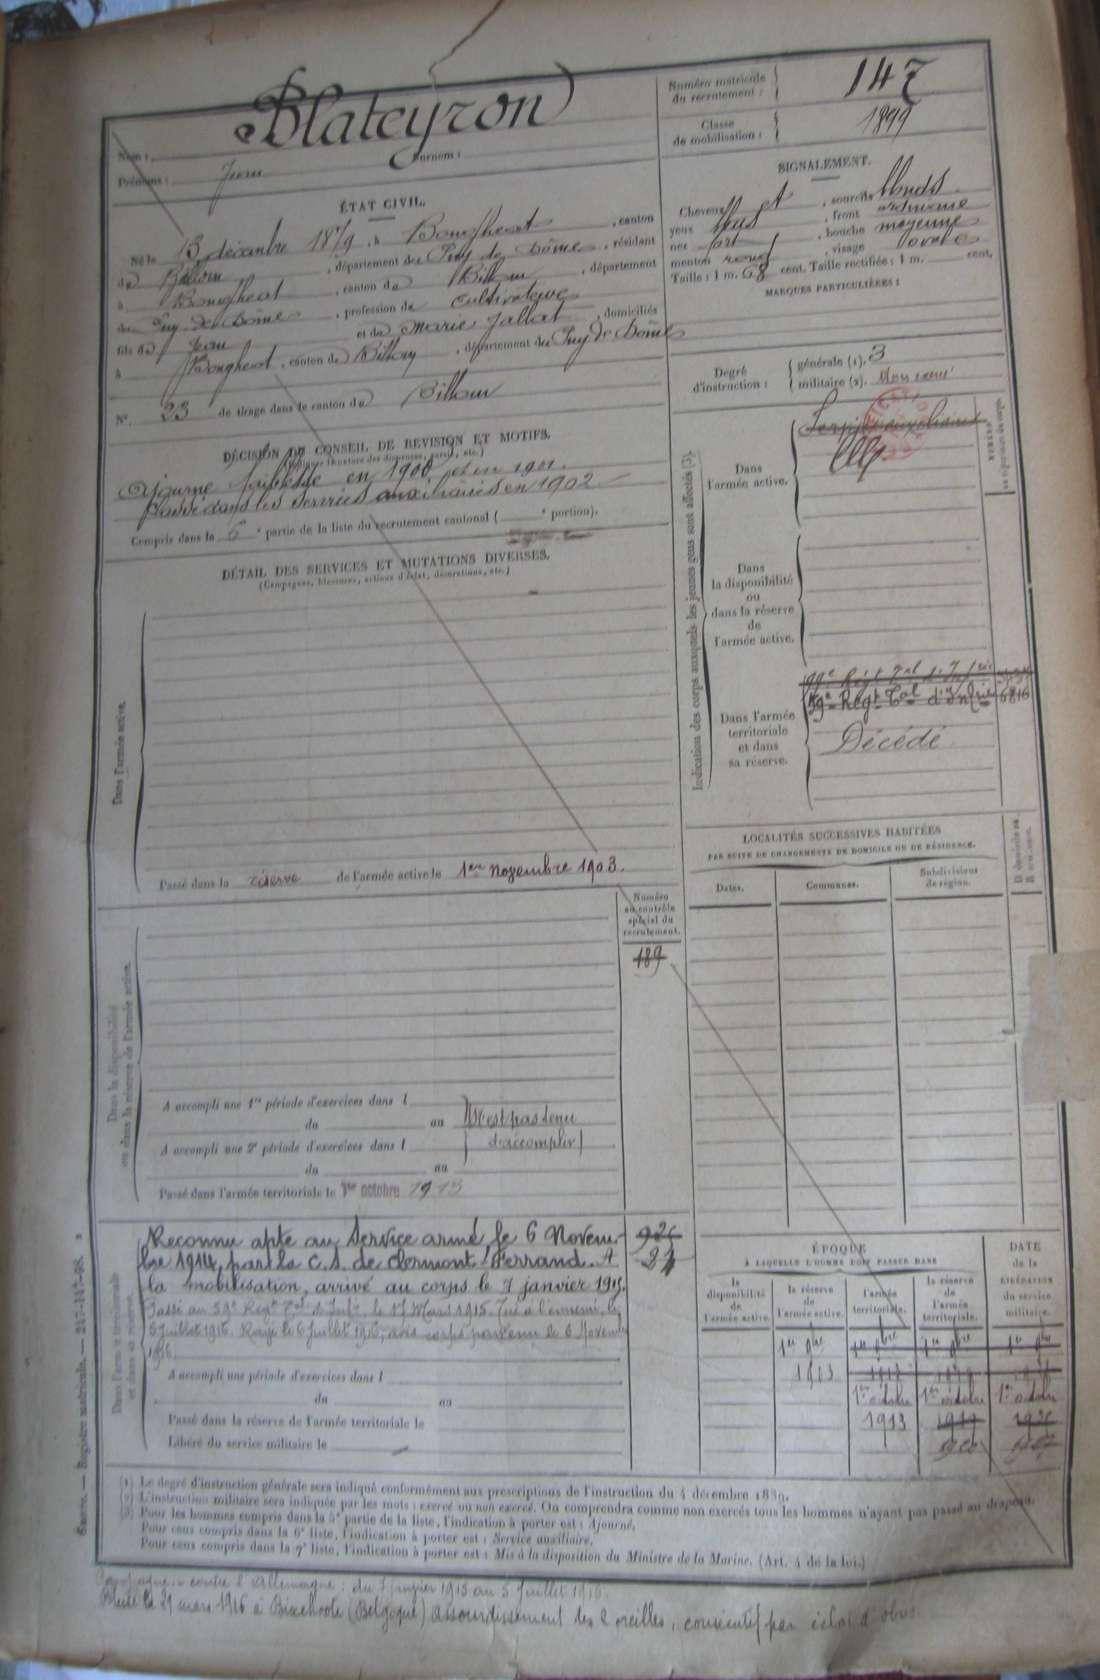 Numéro matricule du recrutement : 147
Classe de mobilisation : 1899
Nom : Blateyron
Surnom :
Prénoms : Jean
ÉTAT CIVIL.
Né le 13 décembre 1879, à Bongheat, canton
de Billom, département du Puy de Dôme, résidant
à Bongheat, canton de Billom, département
du Puy de Dôme, profession de cultivateur
fils de Jean et de Marie Jallat, domiciliés
à Bongheat, canton de Billom, département du Puy de Dôme
N° 23 de tirage dans le canton de Billom
SIGNALEMENT.
Cheveux et, sourcils blonds
yeux, front ordinaire
nez fort, bouche moyenne
menton rond, visage ovale
Taille : 1 m. 68 cent. Taille rectifiée : 1 m. cent.
MARQUES PARTICULIÈRES :
Degré d'instruction : générale (1). 3
militaire (2). Non exercé
DÉCISION DU CONSEIL DE REVISION ET MOTIFS.
Ajourné faiblesse en 1900 et en 1901.
Passé dans les services auxiliaires en 1902
Compris dans la 6e partie de la liste du recrutement cantonal ( e portion).
DÉTAIL DES SERVICES ET MUTATIONS DIVERSES.
(Campagnes, blessures, actions d'éclat, décorations, etc.)
Dans l'armée active.
Passé dans la réserve de l'armée active le 1er novembre 1903.
Indication des corps auxquels les jeunes gens sont affectés (3).
Dans l'armée active.
Service auxiliaire
Dans la disponibilité ou dans la réserve de l'armée active.
Dans l'armée territoriale et dans sa réserve.
99e Régt Tal d'Infrie
59e Régt Tal d'Infrie 6816
Décédé
LOCALITÉS SUCCESSIVES HABITÉES
PAR SUITE DE CHANGEMENTS DE DOMICILE OU DE RÉSIDENCE.
Dates. Communes. Subdivisions de région. D domicile ou R résidence.
Numéro au contrôle spécial du recrutement.
189
Dans la disponibilité ou dans la réserve de l'armée active.
A accompli une 1re période d'exercices dans l
du au N'est pas tenu
A accompli une 2e période d'exercices dans l d'accomplir
du au
Passé dans l'armée territoriale le 1er octobre 1913
Dans l'armée territoriale et dans sa réserve.
Reconnu apte au Service armé le 6 Novem-
bre 1914, par la C.S. de Clermont-Ferrand. A
la mobilisation, arrivé au corps le 7 janvier 1915.
Passé au 59e Régt Tal d'Infie le 17 Mars 1915. Tué à l'ennemi le
5 juillet 1916. Rayé le 6 juillet 1916, avis corps parvenu le 6 Novembre
1916.
A accompli une période d'exercices dans l
du au
Passé dans la réserve de l'armée territoriale le
Libéré du service militaire le
ÉPOQUE
À LAQUELLE L'HOMME DOIT PASSER DANS
DATE de la LIBÉRATION du service militaire.
la disponibilité de l'armée active.
la réserve de l'armée active.
l'armée territoriale.
la réserve de l'armée territoriale.
1er 9bre 1er 9bre 1er 9bre 1er 9bre
1903
1er octobre 1er octobre 1er octobre
1913 1919
(1) Le degré d'instruction générale sera indiqué conformément aux prescriptions de l'instruction du 4 décembre 1889.
(2) L'instruction militaire sera indiquée par les mots : exercé ou non exercé. On comprendra comme non exercés tous les hommes n'ayant pas passé au drapeau.
(3) Pour les hommes compris dans la 5e partie de la liste, l'indication à porter est : Ajourné.
Pour ceux compris dans la 6e liste, l'indication à porter est : Service auxiliaire.
Pour ceux compris dans la 7e liste, l'indication à porter est : Mis à la disposition du Ministre de la Marine. (Art. 4 de la loi.)
Campagne. - contre l'Allemagne : du 7 janvier 1915 au 5 Juillet 1916.
Blessé le 29 mars 1916 à Bixchoote (Belgique) assourdissement des 2 oreilles, consécutif par éclat d'obus.